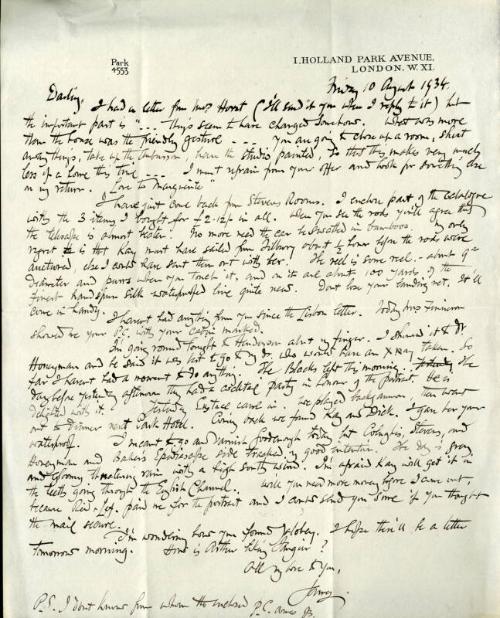 Park
4553
1, HOLLAND PARK AVENUE,
LONDON. W. XI.
Friday 10 August 1934.
Darling, I had a letter from Mrs (I'll send it you when I reply to it) but
the important part is "... Things seem to have changed somehow. What was more
than the house was the friendly gesture ... You are going to close up a room, sheet
away things, take up the, have the studio painted, so that this makes very much
less of a Love this time ... I must refrain from your offer and look for somewhere else
on my return. Love to Marguerite"
I have just come back from Stevens Rooms. I enclose part of the catalogue
with the 3 items I bought for £2-12/- in all. When you see the rods you'll agree that
the telescope is almost. No more need the car be in bamboos. My only
regret is that Kay must have sailed from Tilbury about ½ hour before the rods were
auctioned, else I could have sent them out with her. The reel is some reel - about 4"
diameter and purrs when you touch it, and on it are about 100 yards of the
finest handspun silk waterproofed line quite new. Don't lose your landing net. It'll
come in handy.
I haven't had anything from you since the Lisbon letter. Today Mrs
showed me your P.C. with your cabin marked.
I'm going round tonight to Henderson about my finger. I showed it to Dr
Honeyman and he said it was best to go to my dr. who would have an X ray taken. So
far I haven't had a moment to do anything. The Blacks left this morning. The
day before yesterday afternoon they had a cocktail party in honour of the portrait. He is
delighted with it. Yesterday Eustace came in. We played backgammon then went
out to dinner next Park Hotel. Coming back we found Kay and Dick. I gave her your
waterproof.
I meant to go and varnish today but, Stevens, and
Honeyman and Baker's side trapped my good intention. The day is grey
and gloomy threatening rain with a high south wind. I'm afraid Kay will get it in
the teeth going through the English Channel. Will you need more money before I come out,
because paid me for the portrait and I could send you some if you thought
the mail secure.
I'm wondering how you found. I hope there'll be a letter
tomorrow morning. How is Arthur?
All my love to you,
P.S. I don't know from whom the enclosed P.C. comes